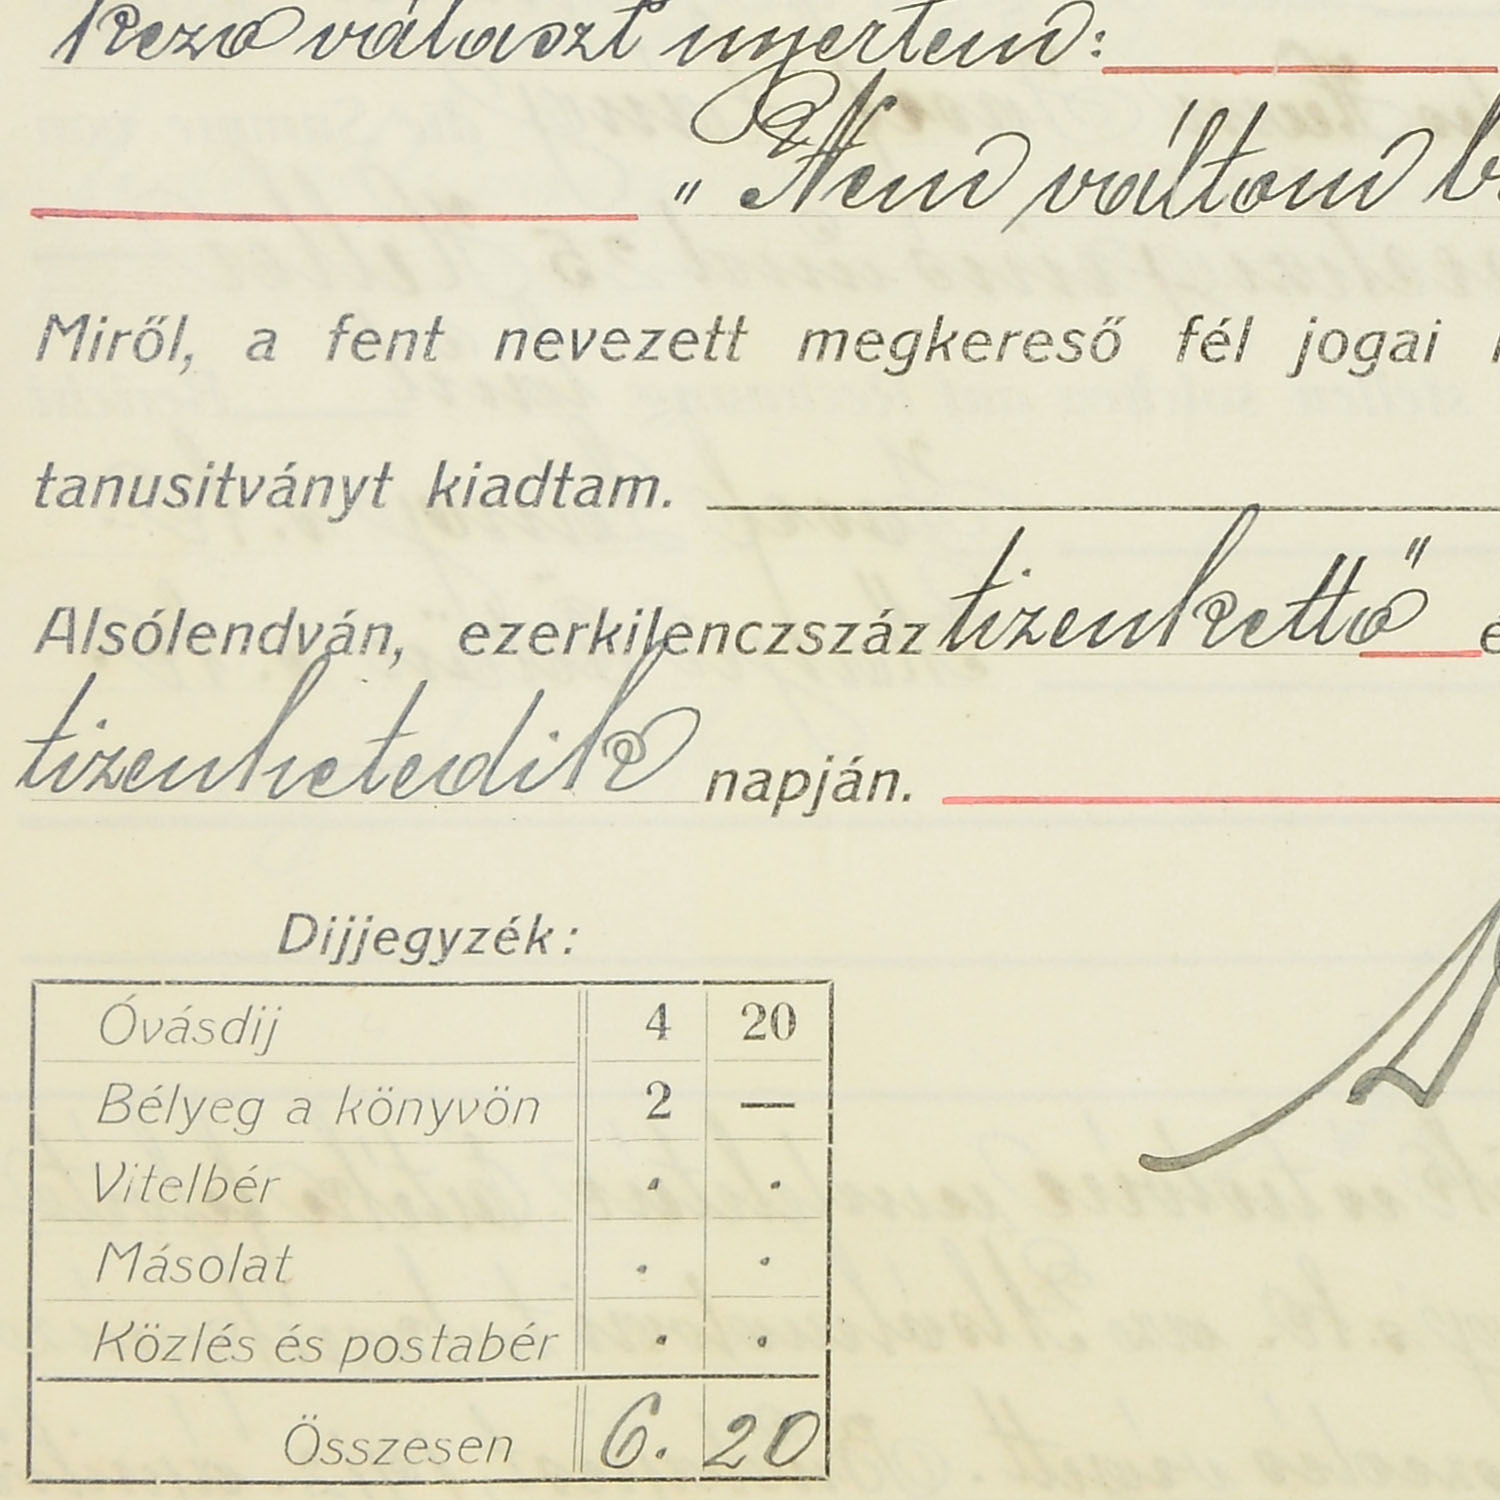 kező választ nyertem:
„Nem váltom
Miről, a fent nevezett megkereső fél jogai
tanusitványt kiadtam.
Alsólendván, ezerkilenczszáz tizenkettő
tizenhetedik napján.
Dijjegyzék:
Óvásdij 4 20
Bélyeg a könyvön 2 —
Vitelbér . .
Másolat . .
Közlés és postabér . .
Összesen 6. 20